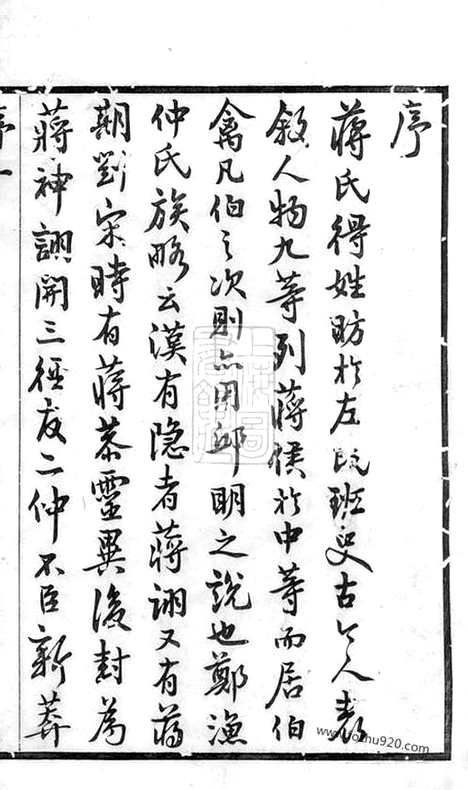 序
蔣氏得姓昉於左氏班史古今人表
敘人物九等列蔣侯於中等而居伯
禽凡伯之次則亦用邱明之說也鄭漁
仲氏族略云漢有隱者蔣詡又有蔣
期劉宋時有蔣恭靈異後封為
蔣神詡開三徑友二仲不臣新莽
序一